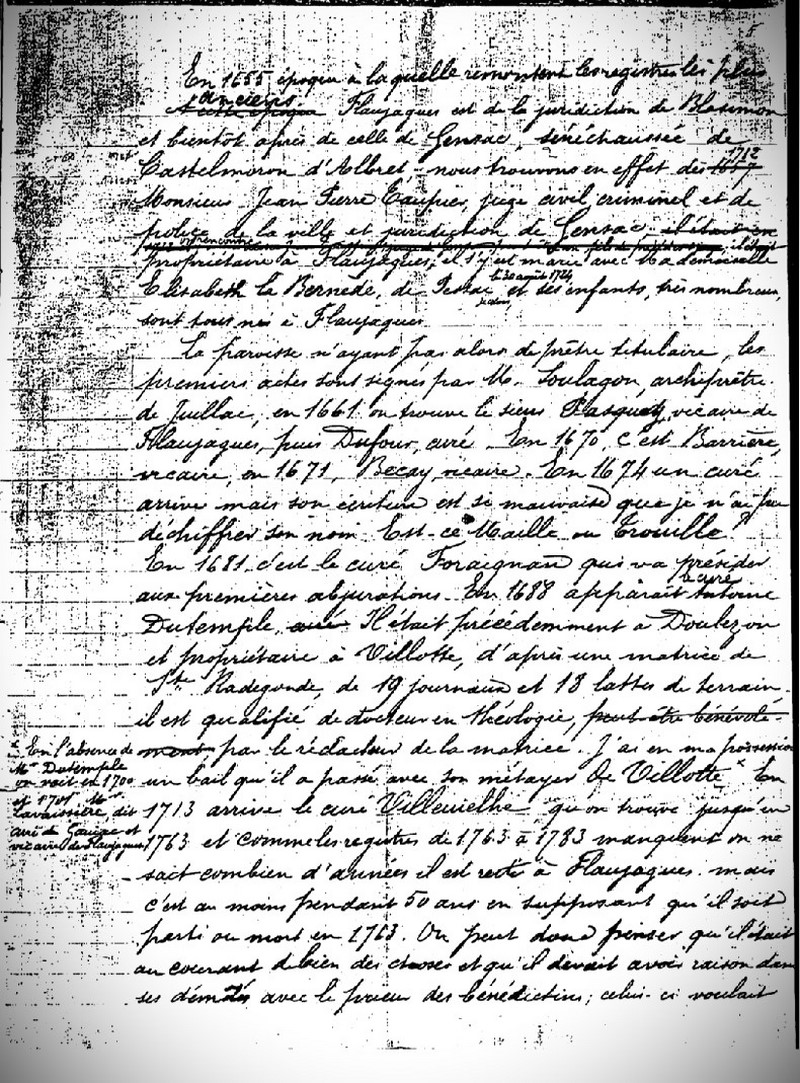 En 1655 époque à laquelle remontent les registres les plus
anciens Flaujagues est de la juridiction de Blasimon
et bientôt après de celle de Gensac, sénéchaussée de
Castelmoron d'Albret - nous trouvons en effet dès 1657 1712
Monsieur Jean Pierre Eaupier, juge civil criminel et de
police de la ville et juridiction de Gensac, il était en
propriétaire à Flaujagues, il s'y est marié avec Mademoiselle
le 30 août 1724
Elisabeth la Bernède, de Pessac et ses enfants, très nombreux,
sont tous nés à Flaujagues.
La paroisse n'ayant pas alors de prêtre titulaire, les
premiers actes sont signés par M. Soulagon, archiprêtre
de Juillac, en 1661 on trouve le sieur Pasquet, vicaire de
Flaujagues, puis Dufour, curé. En 1670, c'est Barrière,
vicaire, en 1671, Becay vicaire. En 1674 un curé
arrive mais son écriture est si mauvaise que je n'ai pu
déchiffrer son nom. Est-ce Maille ou Trouille ?
En 1681 c'est le curé Foraignan qui va présider
aux premières abjurations. En 1688 apparait le curé Antoine
Dutemple, curé Il était précédemment à Doulezon
et propriétaire à Villotte, d'après une matrice de
Ste Radegonde, de 19 journaux et 18 lattes de terrain.
il est qualifié de docteur en théologie, peut-être bénévole-
ment par le rédacteur de la matrice. J'ai en ma possession
un bail qu'il a passé avec son métayer de Villotte x En
1713 arrive le curé Villevielhe qu'on trouve jusqu'en
1763 et comme les registres de 1763 à 1783 manquent on ne
sait combien d'années il est resté à Flaujagues. mais
c'est au moins pendant 50 ans en supposant qu'il soit
parti ou mort en 1763. On peut donc penser qu'il était
au courant de bien des choses et qu'il devait avoir raison dans
ses démêlés avec le prieur des bénédictins ; celui-ci voulait
x En l'absence de
Mr Dutemple
on voit en 1700
et 1701 Mr
Lavaissière, dit
curé de Gauriac et
vicaire de Flaujagues